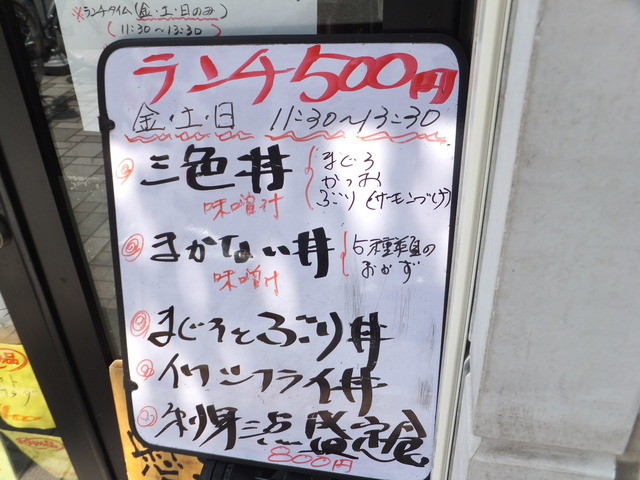 ※ランチタイム(金・土・日のみ)
(11:30~13:30)
ランチ500円
金・土・日 11:30~13:30
三色丼
味噌汁
まぐろ
かつお
ぶり
まかない丼
味噌汁
5種類の
おかず
まぐろとぶり丼
イワシフライ丼
刺身三点盛定食
800円